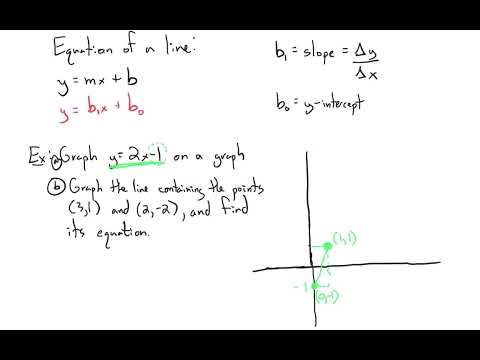 Equation of a line:
y = mx + b
y = b₁x + b₀
b₁ = slope = Δy/Δx
b₀ = y-intercept
Ex: a Graph y = 2x-1 on a graph
b Graph the line containing the points
(3,1) and (2,-2), and find
its equation.
(1,1)
-1
(0,-1)